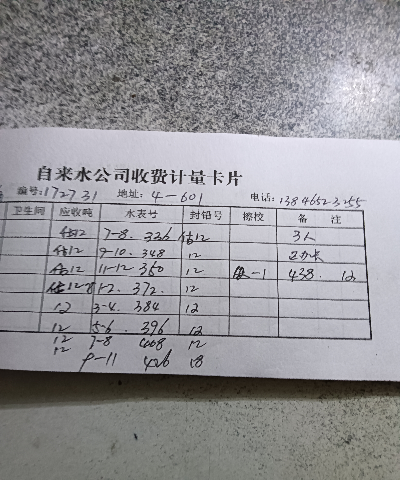 自来水公司收费计量卡片
编号:172731 地址: 4-601 电话: 13846523255
卫生间 应收吨 水表分 封铅号 擦校 备 注
估12 7-8. 336 估12 3人
估12 9-10. 348 12 卫办卡
估12 11-12 360 12 -1 438. 12
估12 1-2. 372. 12
12 3-4. 384 12
12 5-6. 396 12
12 7-8 408 12
12 9-11 426 18